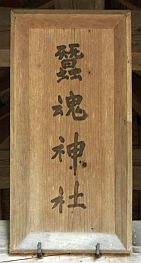 蠶魂神社